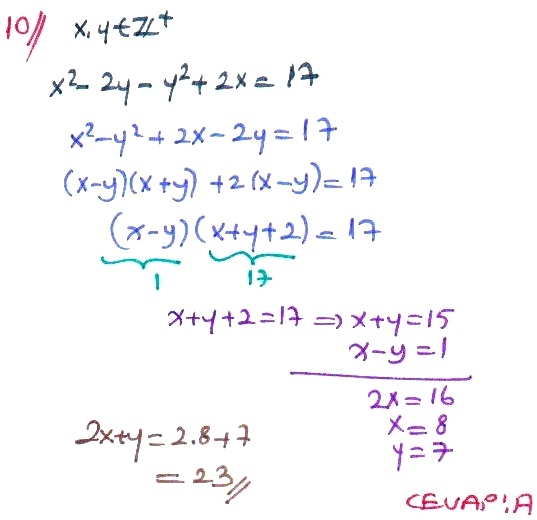 10// x, y ∈ ℤ⁺
x² - 2y - y² + 2x = 17
x² - y² + 2x - 2y = 17
(x-y)(x+y) + 2(x-y) = 17
(x-y)(x+y+2) = 17
1 17
x+y+2=17 ⇒ x+y=15
x-y=1
2x=16
x=8
y=7
2x+y=2.8+7
=23//
CEVAP:A